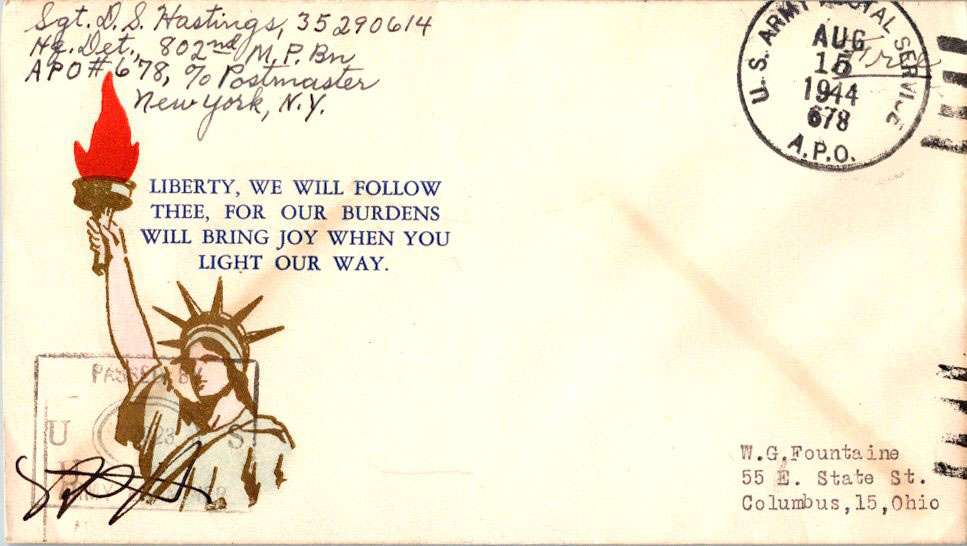 Sgt. D. S. Hastings, 35290614
Hq. Det., 802nd M.P. Bn
APO # 678, % Postmaster
New York, N.Y.
U.S. ARMY POSTAL SERVICE
AUG
15
1944
678
A.P.O.
Free
LIBERTY, WE WILL FOLLOW
THEE, FOR OUR BURDENS
WILL BRING JOY WHEN YOU
LIGHT OUR WAY.
PASSED BY
U S
W.G.Fountaine
55 E. State St.
Columbus,15,Ohio